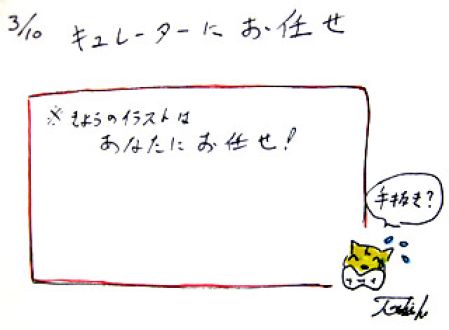 3/10 キュレーターにお任せ
※きょうのイラストは
あなたにお任せ!
手抜き?